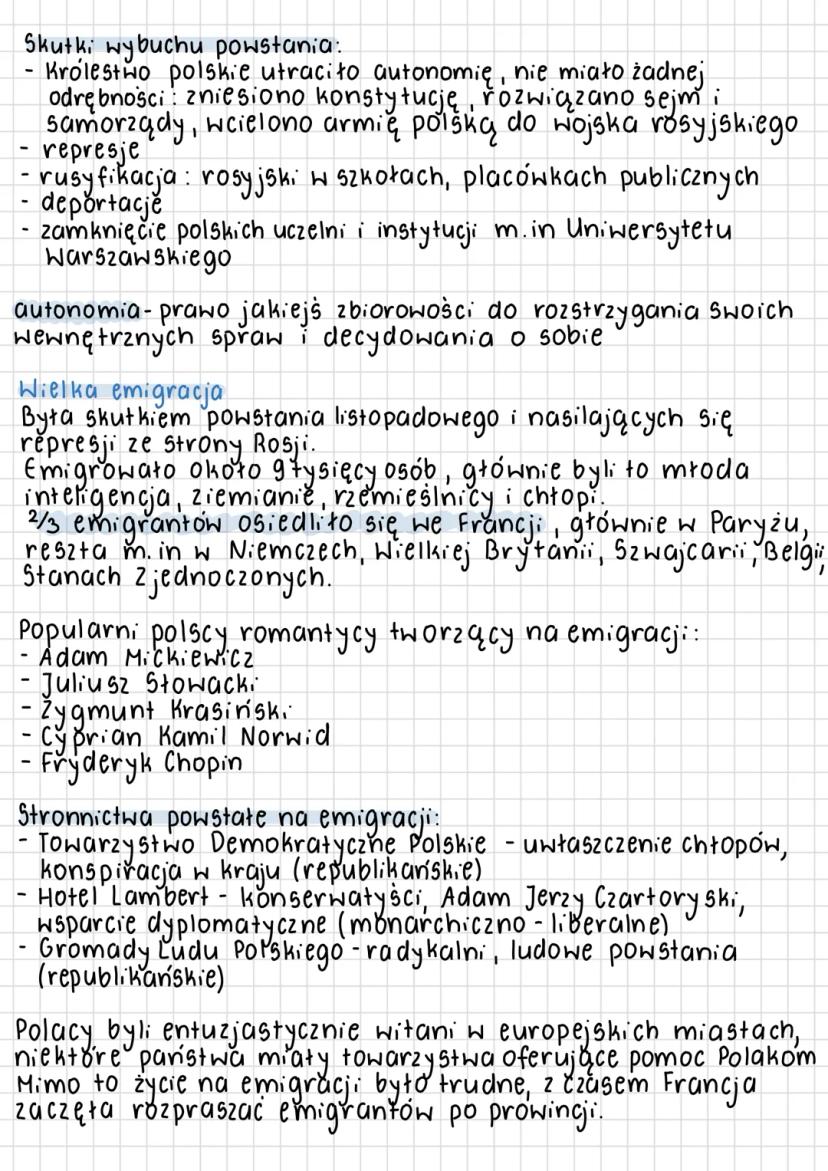 Skutki wybuchu powstania:
- Królestwo polskie utraciło autonomię, nie miało żadnej
odrębności: zniesiono konstytucję, rozwiązano sejm i
samorządy, wcielono armię polską do wojska rosyjskiego
- represje
- rusyfikacja: rosyjski w szkołach, placówkach publicznych
- deportacje
- zamknięcie polskich uczelni i instytucji m.in Uniwersytetu
Warszawskiego
autonomia - prawo jakiejś zbiorowości do rozstrzygania swoich
wewnętrznych spraw i decydowania o sobie
Wielka emigracja
Była skutkiem powstania listopadowego i nasilających się
represji ze strony Rosji.
Emigrowało około 9 tysięcy osób, głównie byli to młoda
inteligencja, ziemianie, rzemieślnicy i chłopi.
2/3 emigrantów osiedliło się we Francji, głównie w Paryżu,
reszta m.in w Niemczech, Wielkiej Brytanii, Szwajcarii, Belgii,
Stanach Zjednoczonych.
Popularni polscy romantycy tworzący na emigracji:
- Adam Mickiewicz
- Juliusz Słowacki
- Zygmunt Krasiński
- Cyprian Kamil Norwid
- Fryderyk Chopin
Stronnictwa powstałe na emigracji:
- Towarzystwo Demokratyczne Polskie - uwłaszczenie chłopów,
konspiracja w kraju (republikańskie)
- Hotel Lambert - konserwatyści, Adam Jerzy Czartoryski,
wsparcie dyplomatyczne (monarchiczno - liberalne)
- Gromady Ludu Polskiego - radykalni, ludowe powstania
(republikańskie)
Polacy byli entuzjastycznie witani w europejskich miastach,
niektóre państwa miały towarzystwa oferujące pomoc Polakom
Mimo to życie na emigracji było trudne, z czasem Francja
zaczęła rozpraszać emigrantów po prowincji.